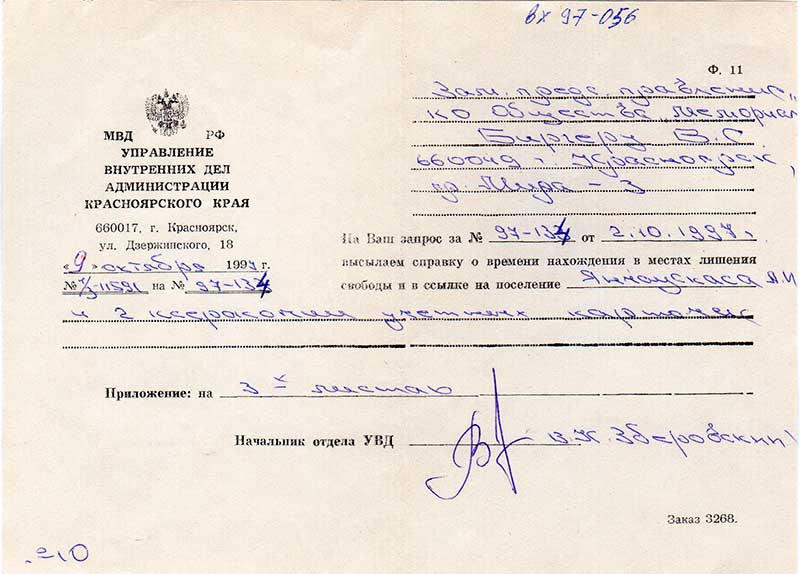 вх 97-056
Ф. 11
МВД РФ
УПРАВЛЕНИЕ
ВНУТРЕННИХ ДЕЛ
АДМИНИСТРАЦИИ
КРАСНОЯРСКОГО КРАЯ
660017, г. Красноярск,
ул. Дзержинского, 18
«9» октября 1997 г.
№ 7/3-11591 на № 97-134
Зам. пред. правления
КО Общества „Мемориал
Биргеру В.С.
660049 г. Красноярск,
пр. Мира - 3
На Ваш запрос за № 97-134 от 2.10.1997 г.
высылаем справку о времени нахождения в местах лишения
свободы и в ссылке на поселение Янчаускаса
и 2 ксерокопии учетных карточек
Приложение: на 3х листах
Начальник отдела УВД В.К. Зберовский
Заказ 3268.